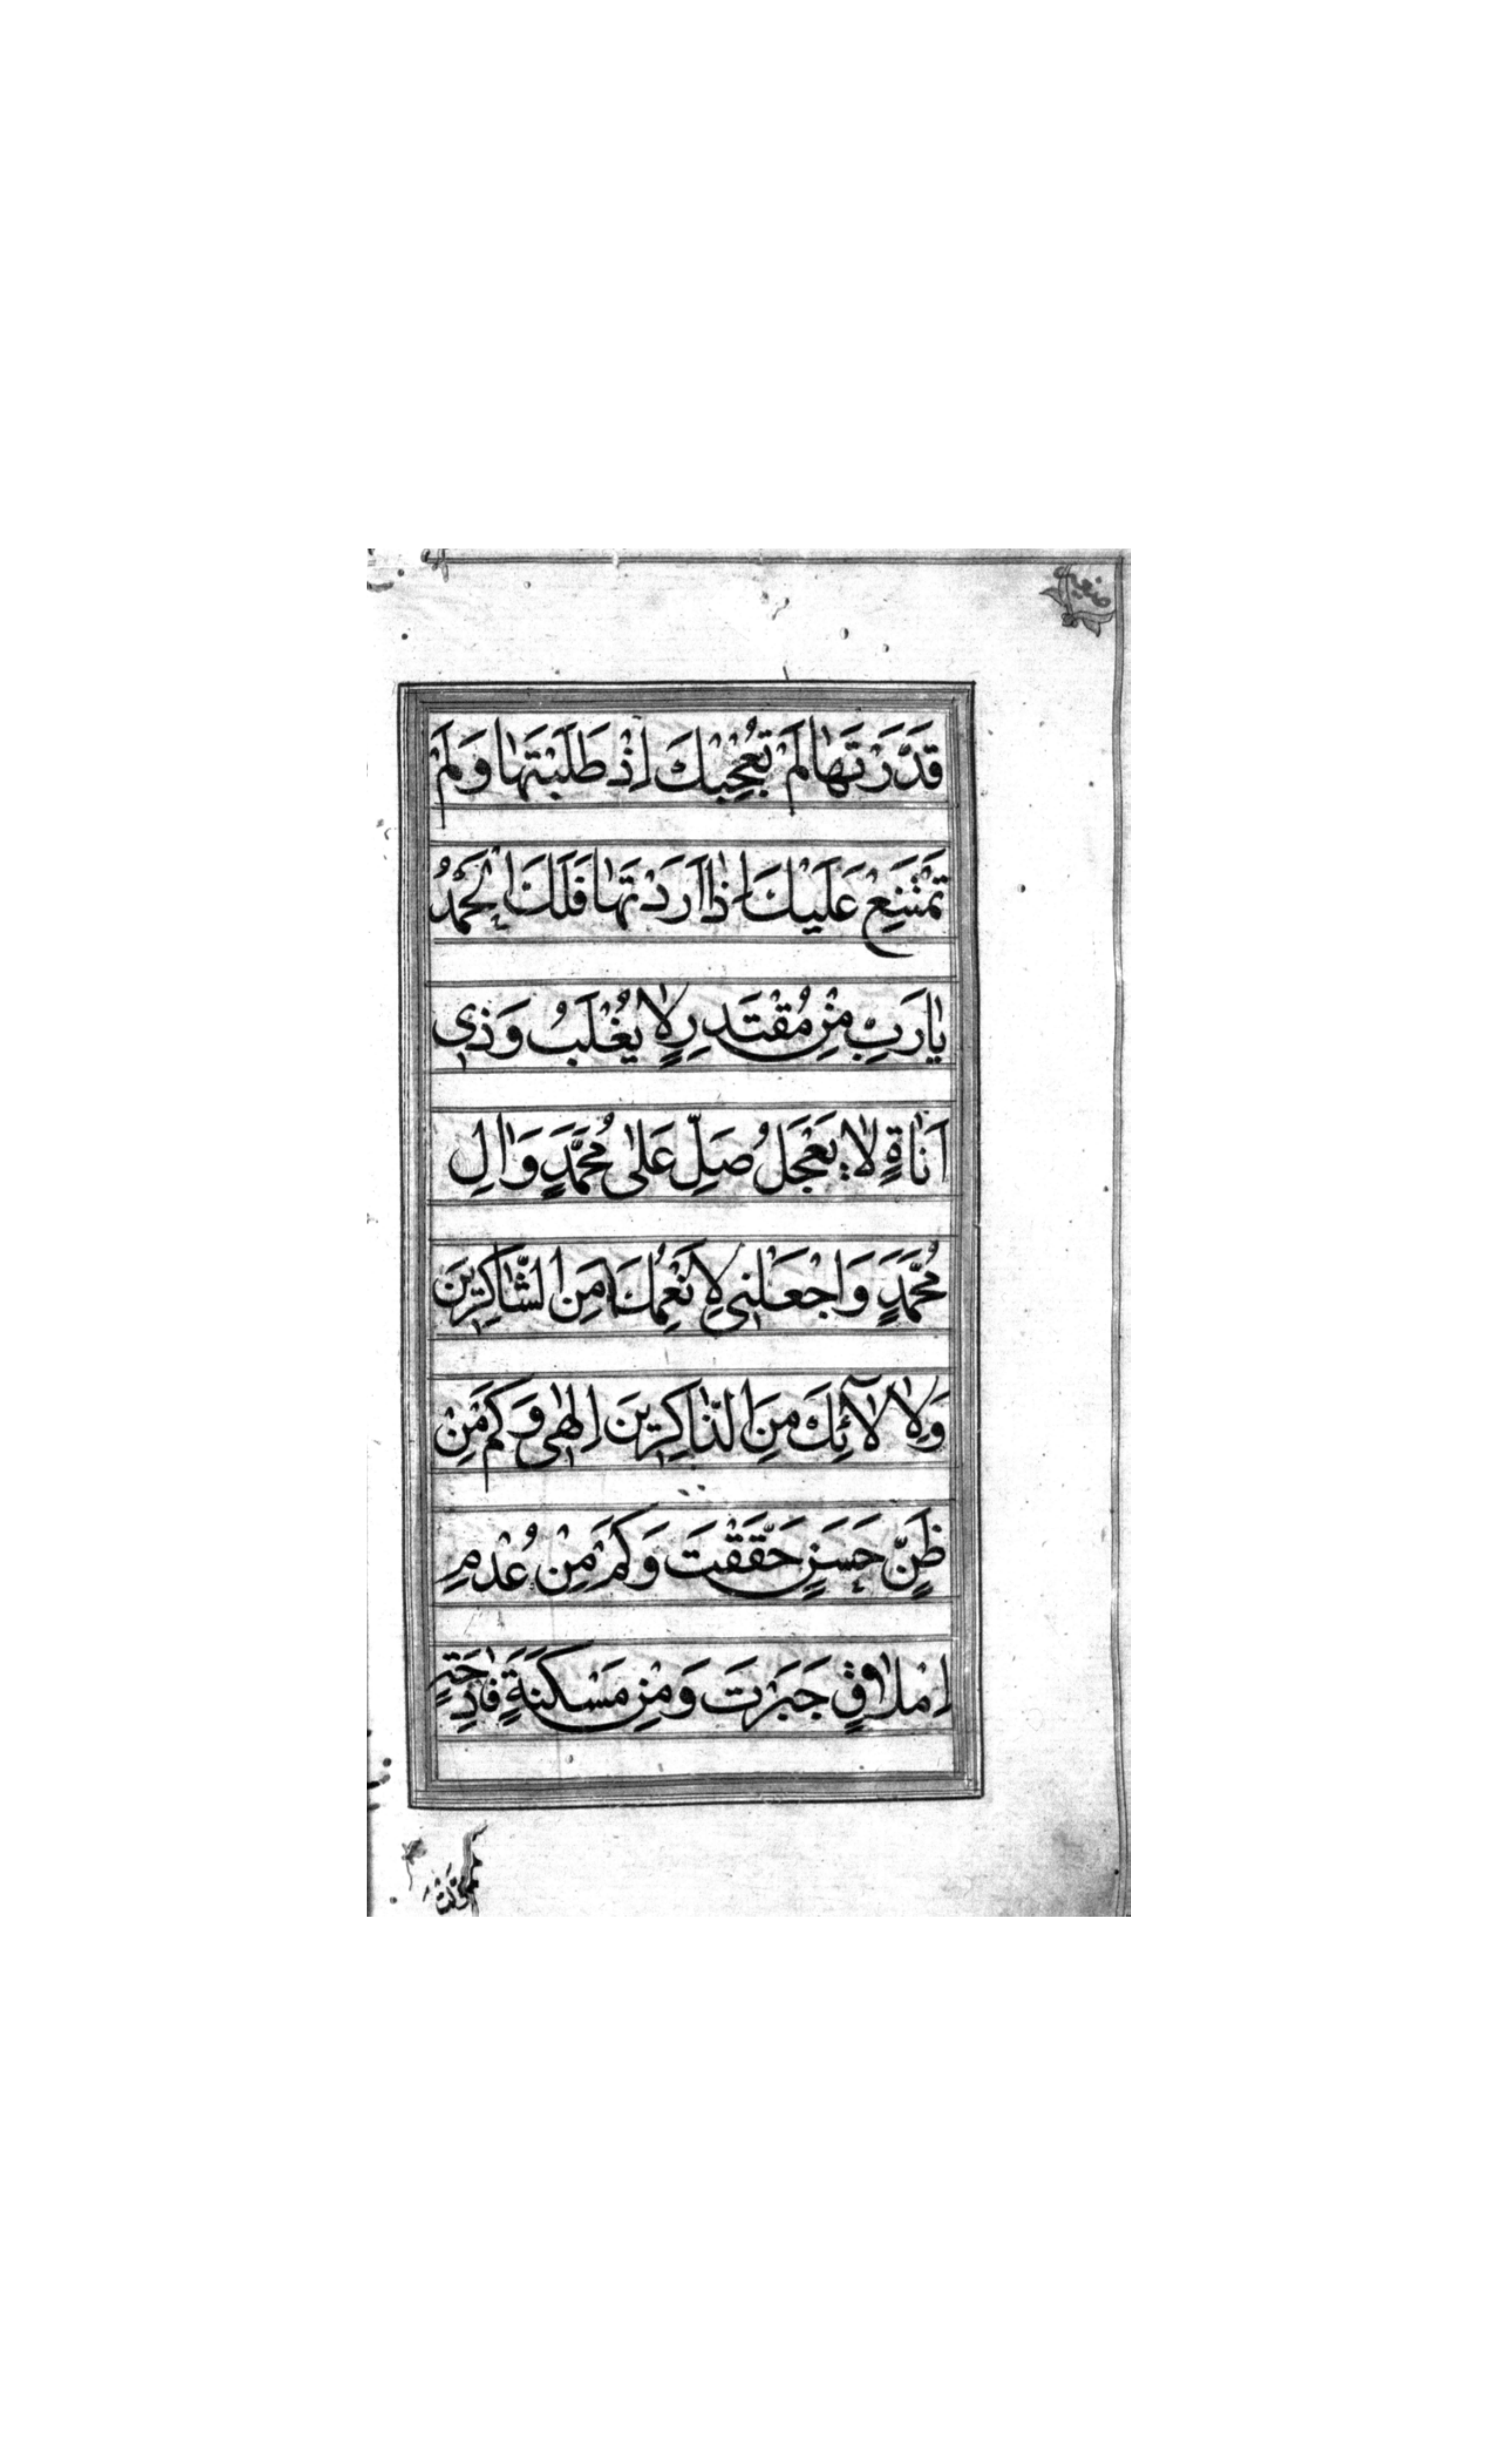 قَدَّرْتَهَا لَمْ تُعْجِبْكَ اِذْ طَلَبْتَهَا وَلَمْ
تَمْتَنِعْ عَلَيْكَ اِذْا اَرَدْتَهَا فَلَكَ الْحَمْدُ
يَا رَبِّ مِنْ مُقْتَدِرٍ لَا يُغْلَبُ وَذِي
اَنَاةٍ لَا يَعْجَلُ صَلِّ عَلَى مُحَمَّدٍ وَالِ
مُحَمَّدٍ وَاجْعَلْنِي لِاَنْعُمِكَ مِنَ الشَّاكِرِينَ
وَلِاٰلَائِكَ مِنَ الذَّاكِرِينَ اِلٰهِي وَكَمْ مِنْ
ظَنٍّ حَسَنٍ حَقَّقْتَ وَكَمْ مِنْ عُدْمِ
اِمْلَاقٍ جَبَرْتَ وَمِنْ مَسْكَنَةٍ فَادِحَةٍ